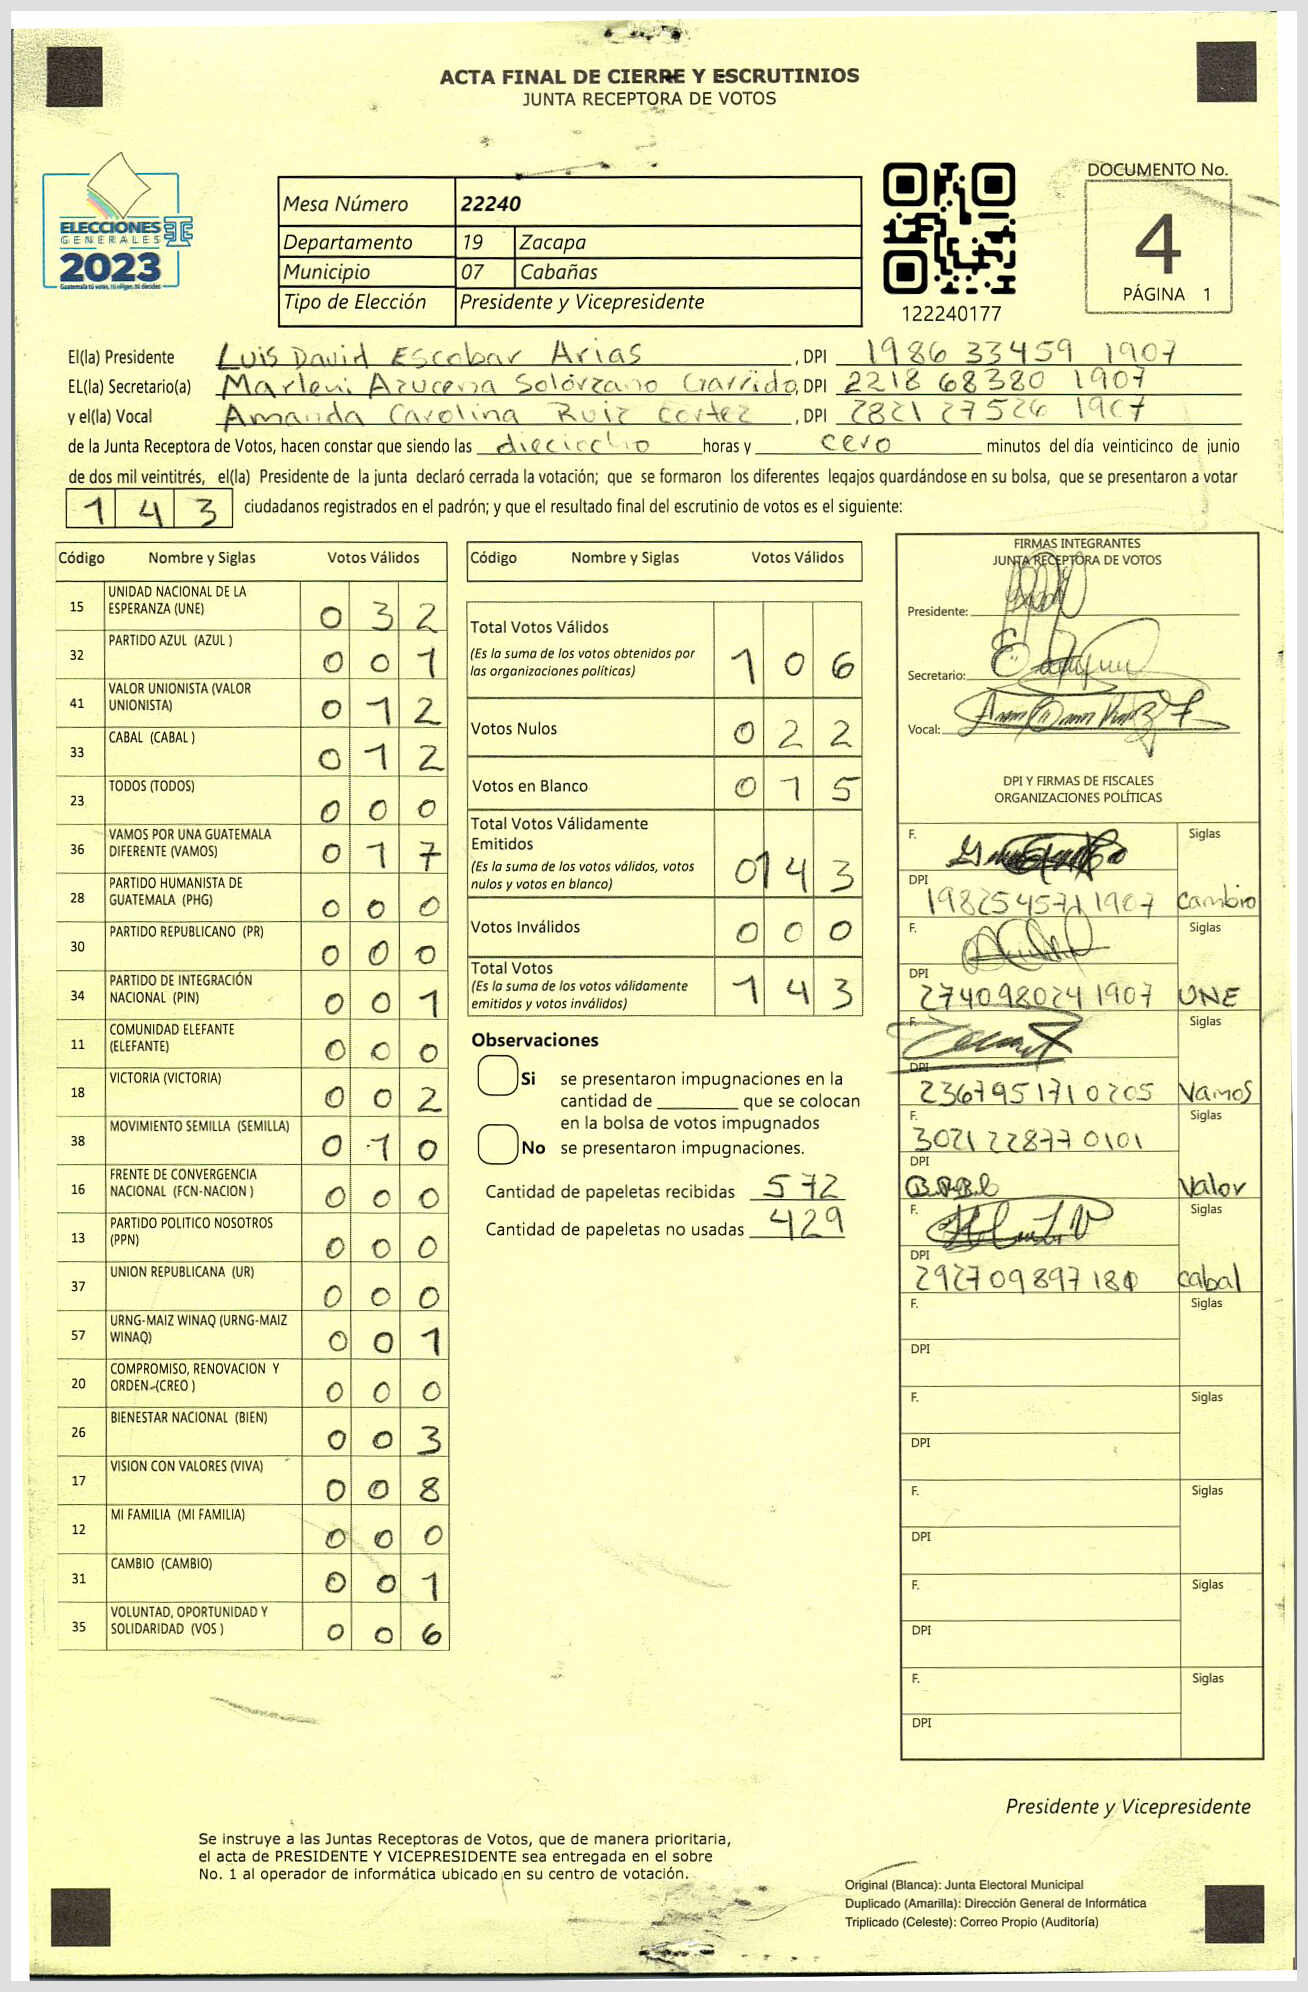 ACTA FINAL DE CIERRE Y ESCRUTINIOS
JUNTA RECEPTORA DE VOTOS
ELECCIONES
GENERALES
2023
Guatemala tú votas, tú eliges, tú decides
Mesa Número 22240
Departamento 19 Zacapa
Municipio 07 Cabañas
Tipo de Elección Presidente y Vicepresidente
122240177
DOCUMENTO No.
4
PÁGINA 1
El(la) Presidente Luis David Escobar Arias, DPI 1986 33459 1907
EL(la) Secretario(a) Marleni Azucena Solórzano Garrido, DPI 2218 68380 1907
y el(la) Vocal Amanda Carolina Ruiz Cortez, DPI 2821 27526 1907
de la Junta Receptora de Votos, hacen constar que siendo las dieciocho horas y cero minutos del día veinticinco de junio
de dos mil veintitrés, el(la) Presidente de la junta declaró cerrada la votación; que se formaron los diferentes legajos quardándose en su bolsa, que se presentaron a votar
143 ciudadanos registrados en el padrón; y que el resultado final del escrutinio de votos es el siguiente:
Código Nombre y Siglas Votos Válidos
15 UNIDAD NACIONAL DE LA ESPERANZA (UNE) 032
32 PARTIDO AZUL (AZUL ) 001
41 VALOR UNIONISTA (VALOR UNIONISTA) 012
33 CABAL (CABAL ) 012
23 TODOS (TODOS) 000
36 VAMOS POR UNA GUATEMALA DIFERENTE (VAMOS) 017
28 PARTIDO HUMANISTA DE GUATEMALA (PHG) 000
30 PARTIDO REPUBLICANO (PR) 000
34 PARTIDO DE INTEGRACIÓN NACIONAL (PIN) 001
11 COMUNIDAD ELEFANTE (ELEFANTE) 000
18 VICTORIA (VICTORIA) 002
38 MOVIMIENTO SEMILLA (SEMILLA) 010
16 FRENTE DE CONVERGENCIA NACIONAL (FCN-NACION ) 000
13 PARTIDO POLITICO NOSOTROS (PPN) 000
37 UNION REPUBLICANA (UR) 000
57 URNG-MAIZ WINAQ (URNG-MAIZ WINAQ) 001
20 COMPROMISO, RENOVACION Y ORDEN (CREO ) 000
26 BIENESTAR NACIONAL (BIEN) 003
17 VISION CON VALORES (VIVA) 008
12 MI FAMILIA (MI FAMILIA) 000
31 CAMBIO (CAMBIO) 001
35 VOLUNTAD, OPORTUNIDAD Y SOLIDARIDAD (VOS ) 006
Código Nombre y Siglas Votos Válidos
Total Votos Válidos 106
(Es la suma de los votos obtenidos por
las organizaciones políticas)
Votos Nulos 022
Votos en Blanco 015
Total Votos Válidamente
Emitidos 0143
(Es la suma de los votos válidos, votos
nulos y votos en blanco)
Votos Inválidos 000
Total Votos 143
(Es la suma de los votos válidamente
emitidos y votos inválidos)
Observaciones
Si se presentaron impugnaciones en la
cantidad de ________ que se colocan
en la bolsa de votos impugnados
No se presentaron impugnaciones.
Cantidad de papeletas recibidas 572
Cantidad de papeletas no usadas 429
FIRMAS INTEGRANTES
JUNTA RECEPTORA DE VOTOS
Presidente:
Secretario:
Vocal:
DPI Y FIRMAS DE FISCALES
ORGANIZACIONES POLÍTICAS
F. Siglas
DPI
1982545711907 Cambio
F. Siglas
DPI
2740980241907 UNE
F. Siglas
DPI
2367951710205 Vamos
F. Siglas
3021228770101
DPI
Valor
F. Siglas
DPI
292709897180 cabal
F. Siglas
DPI
F. Siglas
DPI
F. Siglas
DPI
F. Siglas
DPI
F. Siglas
DPI
Presidente y Vicepresidente
Se instruye a las Juntas Receptoras de Votos, que de manera prioritaria,
el acta de PRESIDENTE Y VICEPRESIDENTE sea entregada en el sobre
No. 1 al operador de informática ubicado en su centro de votación.
Original (Blanca): Junta Electoral Municipal
Duplicado (Amarilla): Dirección General de Informática
Triplicado (Celeste): Correo Propio (Auditoría)